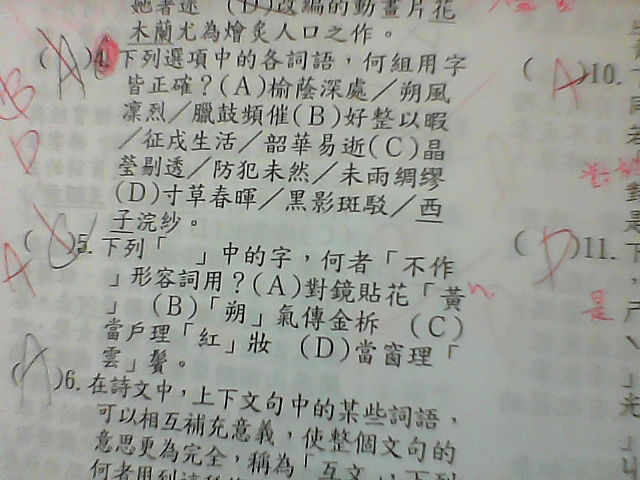 她著迷 (D)改編的動畫片花
木蘭尤為燴炙人口之作。
( A )4. 下列選項中的各詞語，何組用字
皆正確？(A)榆蔭深處／朔風
凜烈／臘鼓頻催(B)好整以暇
／征戍生活／韶華易逝(C)晶
瑩剔透／防犯未然／未雨綢繆
(D)寸草春暉／黑影斑駁／西
子浣紗。
( C )5. 下列「　」中的字，何者「不作
」形容詞用？(A)對鏡貼花「黃
」 (B)「朔」氣傳金柝 (C)
當戶理「紅」妝 (D)當窗理「
雲」鬢。
( A )6. 在詩文中，上下文句中的某些詞語，
可以相互補充意義，使整個文句的
意思更為完全，稱為「互文」，下列
B
D
A
n.
( A )10.
( D )11.
是